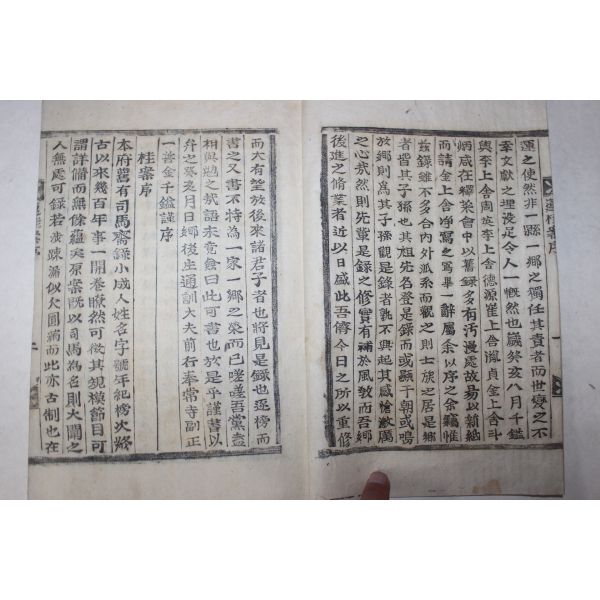 運之使然非一縣一鄉之獨任其責者而世變之不
幸文獻之埋沒足令人一慨然也歲癸亥八月千鑑
與李上舍周英李上舍德源崔上舍胤貞金上舍斗
炳咸在釋菜會中以舊錄多有汚漫處改易以新紙
而請金上舍淨寫焉畢一辭屬余以序之余竊惟
玆錄雖不多合內外派系而觀之則士族之居是鄉
者皆其子孫也其祖先名登是錄而或顯于朝或鳴
於鄉焉爲其子孫觀是錄者孰不興起其感愴激厲
之心哉然則先輩是錄之修實有補於風敎而吾鄉
後進之脩業者近以日盛此吾儕今日之所以重修
而大有望於後來諸君子者也將見是錄也逐榜而
書之又書不特為一家一鄉之榮而已嗟嗟吾黨盍
相與勉之哉語未竟僉曰此可書也於是乎謹書以
弁之癸亥月日鄉後生通訓大夫前行奉常寺副正
一善金千鑑謹序
桂案序
本府舊有司馬齋錄小成人姓名字號年紀榜次終
古以來幾百年事一開卷瞭然可徵其規模節目可
謂詳備而無餘蘊矣原案旣以司馬為名則大闡之
人無處可錄若涉踈漏似欠圓滿而此亦古制也在
蓮桂案序
一
二